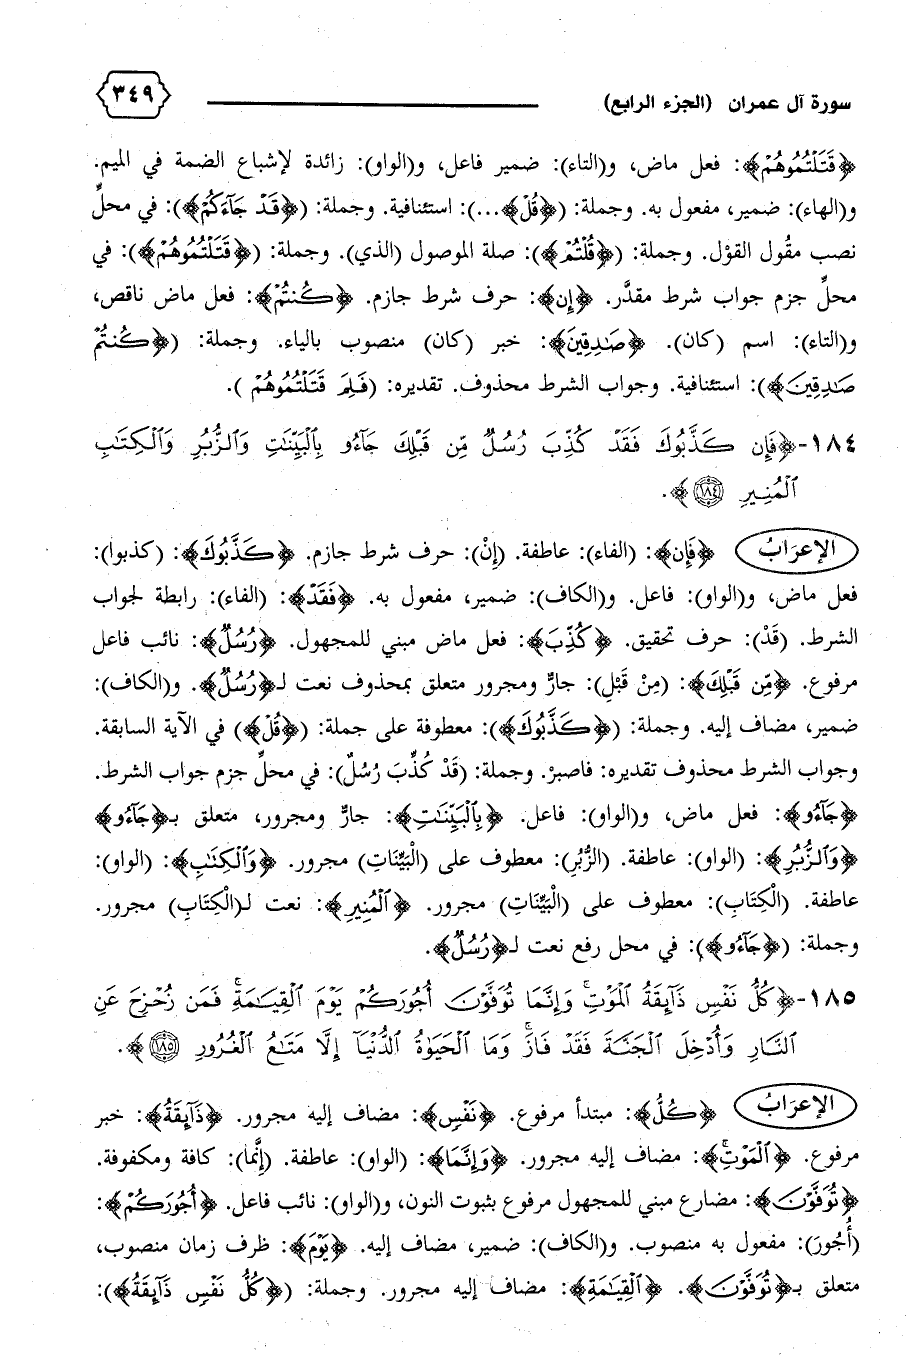 سورة آل عمران (الجزء الرابع) ٣٤٩
﴿قَتَلْتُمُوهُمْ﴾: فعل ماض، و(التاء): ضمير فاعل، و(الواو): زائدة لإشباع الضمة في الميم.
و(الهاء): ضمير، مفعول به. وجملة: (﴿قُلْ﴾...): استئنافية. وجملة: (﴿قَدْ جَآءَكُمْ﴾): في محلِّ
نصب مقُول القوْل. وجملة: (﴿قُلْتُمْ﴾): صلة الموصول (الذي). وجملة: (﴿قَتَلْتُمُوهُمْ﴾): في
محلِّ جزم جواب شرط مقدَّر. ﴿إِن﴾: حرف شرط جازم. ﴿كُنتُمْ﴾: فعل ماض ناقص،
و(التاء): اسم (كان). ﴿صَٰدِقِينَ﴾: خبر (كان) منصوب بالياء. وجملة: (﴿كُنتُمْ
صَٰدِقِينَ﴾): استئنافية. وجواب الشرط محذوف. تقديره: (فَلِمَ قَتَلْتُمُوهُمْ).
١٨٤-﴿فَإِن كَذَّبُوكَ فَقَدْ كُذِّبَ رُسُلٌ مِّن قَبْلِكَ جَآءُو بِالْبَيِّنَٰتِ وَالزُّبُرِ وَالْكِتَٰبِ
الْمُنِيرِ ١٨٤﴾.
الإعرَابُ ﴿فَإِن﴾: (الفاء): عاطفة. (إِنْ): حرف شرط جازم. ﴿كَذَّبُوكَ﴾: (كذبوا):
فعل ماض، و(الواو): فاعل. و(الكاف): ضمير، مفعول به. ﴿فَقَدْ﴾: (الفاء): رابطة لجواب
الشرط. (قَدْ): حرف تحقيق. ﴿كُذِّبَ﴾: فعل ماض مبني للمجهول. ﴿رُسُلٌ﴾: نائب فاعل
مرفوع. ﴿مِّن قَبْلِكَ﴾: (مِنْ قَبْلِ): جارٌّ ومجرور متعلق بمحذوف نعت لـ﴿رُسُلٌ﴾. و(الكاف):
ضمير، مضاف إليه. وجملة: (﴿كَذَّبُوكَ﴾): معطوفة على جملة: (﴿قُلْ﴾) في الآية السابقة.
وجواب الشرط محذوف تقديره: فاصبرْ. وجملة: (قَدْ كُذِّبَ رُسُلٌ): في محلِّ جزم جواب الشرط.
﴿جَآءُو﴾: فعل ماض، و(الواو): فاعل. ﴿بِالْبَيِّنَٰتِ﴾: جارٌّ ومجرور، متعلق بـ﴿جَآءُو﴾
﴿وَالزُّبُرِ﴾: (الواو): عاطفة. (الزُّبُرِ): معطوف على (الْبَيِّنَاتِ) مجرور. ﴿وَالْكِتَٰبِ﴾: (الواو):
عاطفة. (الْكِتَابِ): معطوف على (الْبَيِّنَاتِ) مجرور. ﴿الْمُنِيرِ﴾: نعت لـ(الْكِتَابِ) مجرور.
وجملة: (﴿جَآءُو﴾): في محل رفع نعت لـ﴿رُسُلٌ﴾.
١٨٥-﴿كُلُّ نَفْسٍ ذَآئِقَةُ الْمَوْتِ ۗ وَإِنَّمَا تُوَفَّوْنَ أُجُورَكُمْ يَوْمَ الْقِيَٰمَةِ ۖ فَمَن زُحْزِحَ عَنِ
النَّارِ وَأُدْخِلَ الْجَنَّةَ فَقَدْ فَازَ ۗ وَمَا الْحَيَوٰةُ الدُّنْيَآ إِلَّا مَتَٰعُ الْغُرُورِ ١٨٥﴾.
الإعرَابُ ﴿كُلُّ﴾: مبتدأ مرفوع. ﴿نَفْسٍ﴾: مضاف إليه مجرور. ﴿ذَآئِقَةُ﴾: خبر
مرفوع. ﴿الْمَوْتِ ۗ﴾: مضاف إليه مجرور. ﴿وَإِنَّمَا﴾: (الواو): عاطفة. (إِنَّما): كافة ومكفوفة.
﴿تُوَفَّوْنَ﴾: مضارع مبني للمجهول مرفوع بثبوت النون، و(الواو): نائب فاعل. ﴿أُجُورَكُمْ﴾:
(أُجُورَ): مفعول به منصوب. و(الكاف): ضمير، مضاف إليه. ﴿يَوْمَ﴾: ظرف زمان منصوب،
متعلق بـ﴿تُوَفَّوْنَ﴾. ﴿الْقِيَٰمَةِ﴾: مضاف إليه مجرور. وجملة: (﴿كُلُّ نَفْسٍ ذَآئِقَةُ﴾):